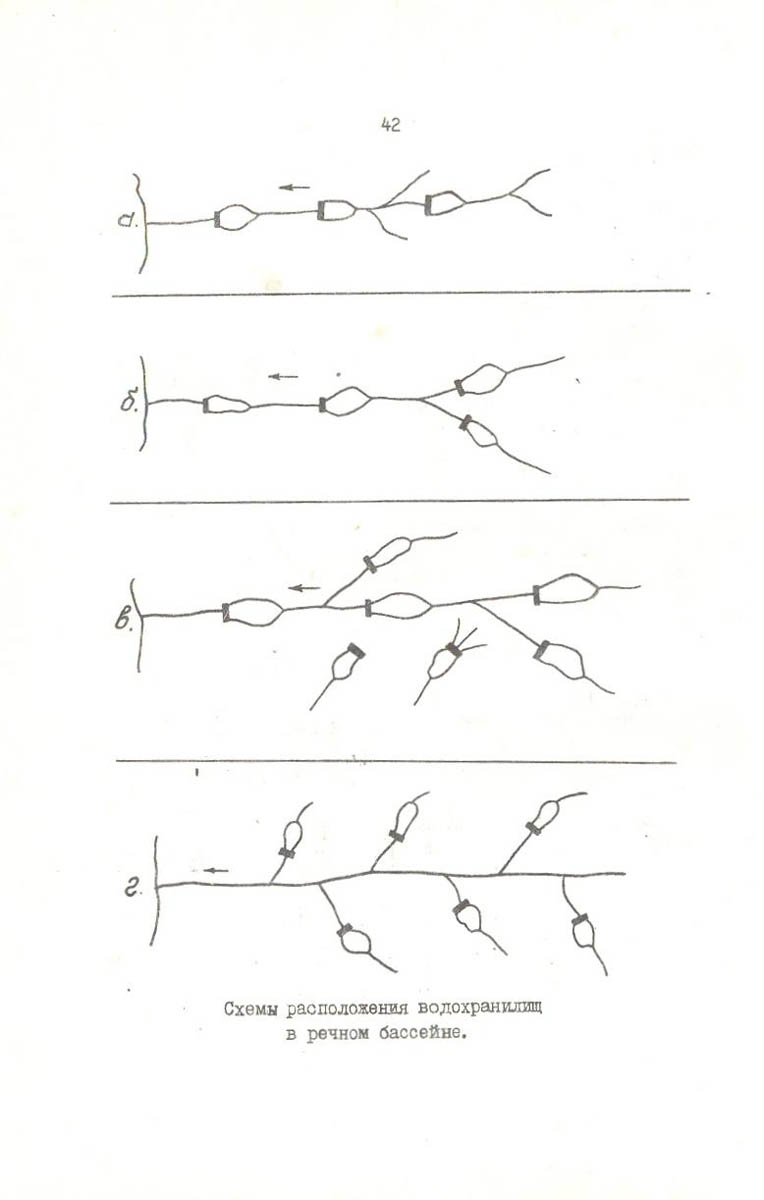 42
а.
б.
в.
г.
Схемы расположения водохранилищ
в речном бассейне.